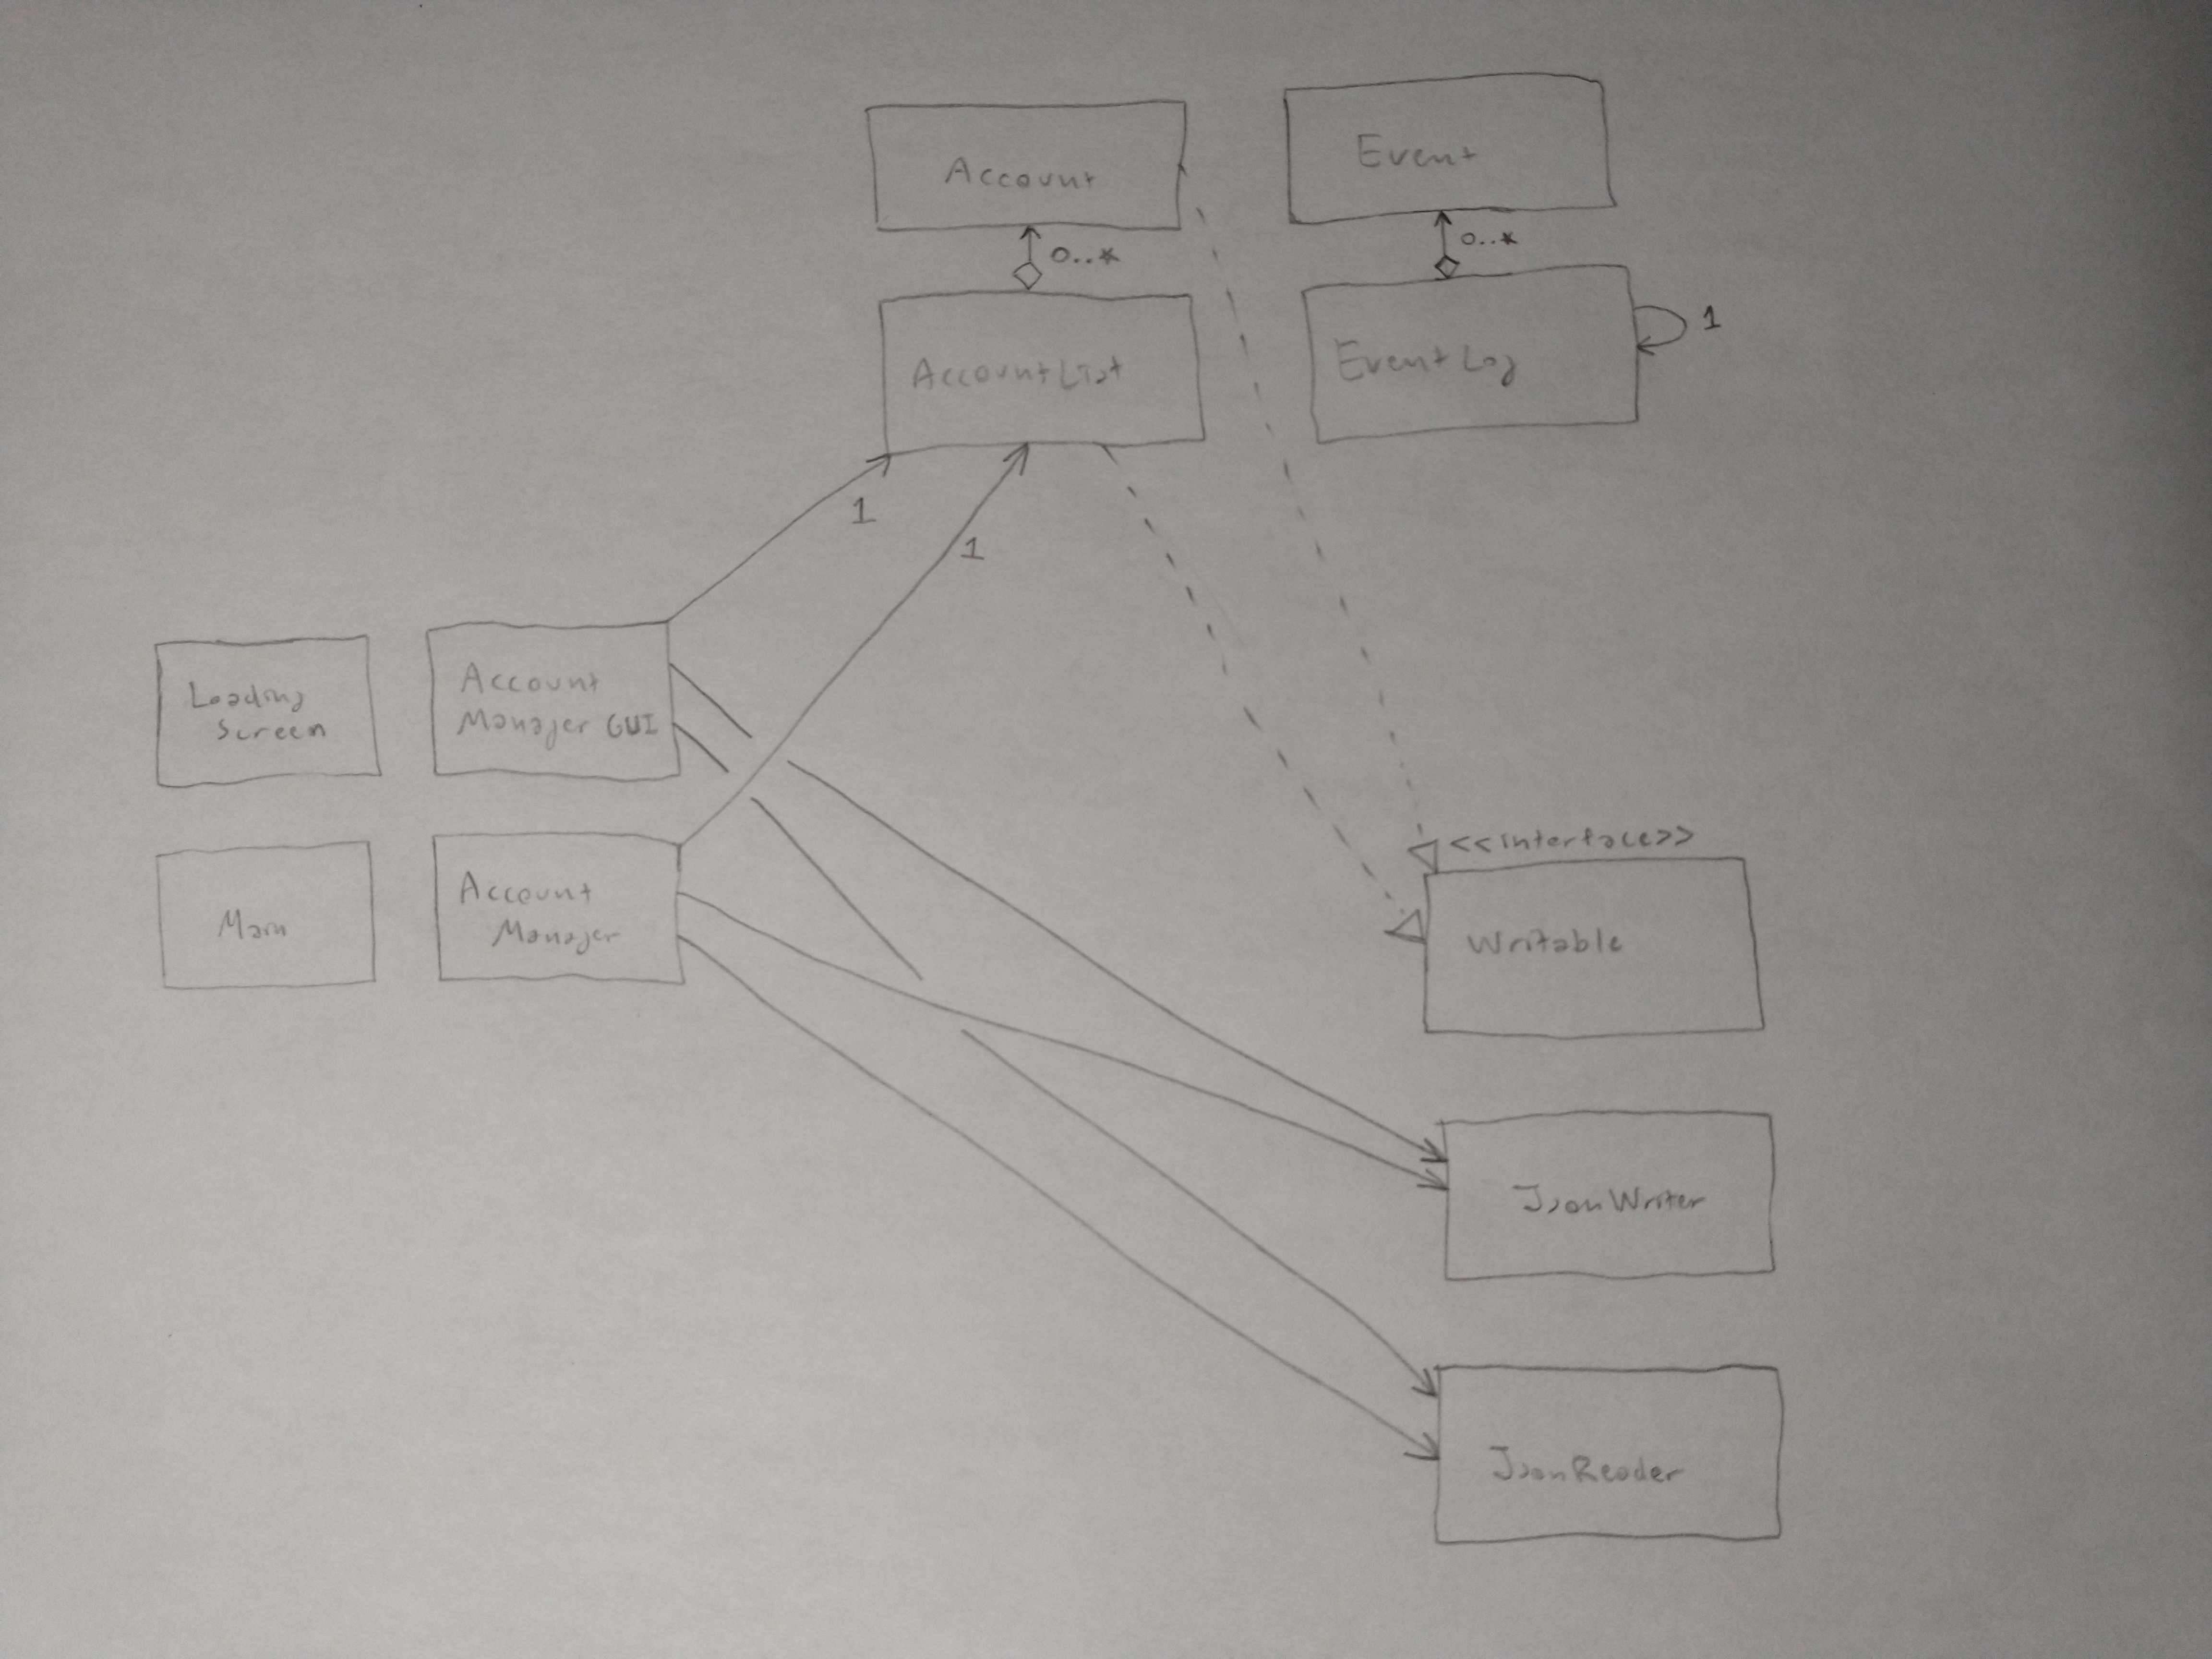 Account
0...*
Event
0...*
AccountList
EventLog
1
1
1
Loading
Screen
Account
Manager GUI
<<interface>>
Main
Account
Manager
Writable
JsonWriter
JsonReader